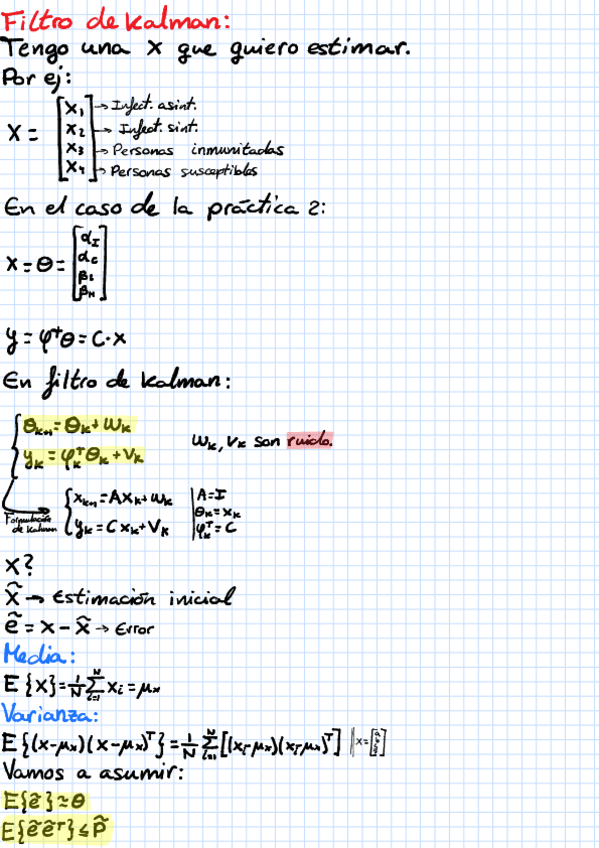 Filtro de Kalman:
Tengo una x que quiero estimar.
Por ej:
X = [x₁ → Infect. asint.
x₂ → Infect. sint.
x₃ → Personas inmunitadas
x₄ → Personas susceptibles]
En el caso de la práctica 2:
X = θ = [α_I
α_C
β_L
β_H]
y = φᵀθ = C·x
En filtro de Kalman:
{ θₖ₊₁ = θₖ + wₖ
yₖ = φₖᵀθₖ + vₖ
wₖ, vₖ son ruido.
Formulación de Kalman
{ xₖ₊₁ = Axₖ + wₖ | A = I
θₖ = xₖ
yₖ = Cxₖ + vₖ | φₖᵀ = C
x?
x̃ → Estimación inicial
ẽ = x - x̃ → Error
Media:
E{x} = 1/N ∑ᵢ₌₁ᴺ xᵢ = μₓ
Varianza:
E{(x-μₓ)(x-μₓ)ᵀ} = 1/N ∑ᵢ₌₁ᴺ [(xᵢ-μₓ)(xᵢ-μₓ)ᵀ] | x =
Vamos a asumir:
E{ẽ} ≈ θ
E{ẽẽᵀ} ≤ P̃